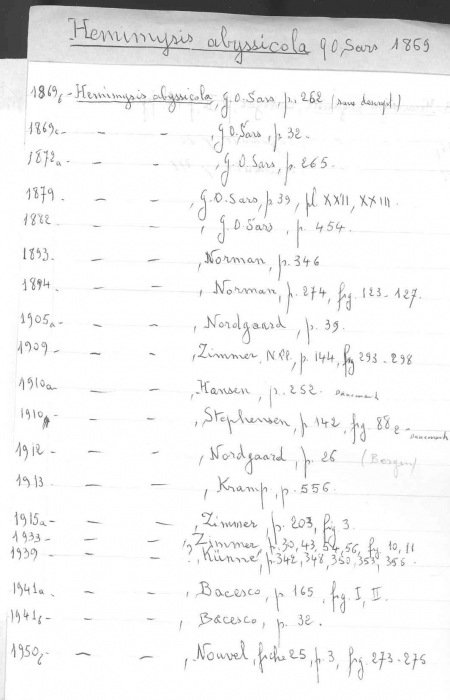 Hemimysis abyssicola G.O. Sars 1869
1869b - Hemimysis abyssicola, G.O. Sars, p. 262 (sans descript.)
1869c - — — , G.O. Sars, p 32 -
1872a - — — , G.O. Sars, p. 265.
1879 - — — , G.O. Sars, p 39, pl XXII, XXIII.
1882 - — — , G.O. Sars, p. 454.
1893 - — — , Norman, p. 346
1894 - — — , Norman, p. 274, fig. 123-127.
1905a - — — , Nordgaard, p. 39.
1909 - — — , Zimmer, p. 144, fig 293-298
1910a - — — , Hansen, p. 252. Danemark
1910 - — — , Stephensen, p. 142, fig. 88 - Danemark
1912 - — — , Nordgaard, p. 26 (Bergen)
1913 - — — , Kramp, p. 556.
1915a - — — , Zimmer, p. 203, fig 3.
1933 - — — , Zimmer, p. 30, 43, 54, 56, fig. 10, 11
1939 - — — , Künne, p. 342, 348, 350, 353, 356.
1941a - — — , Bacesco, p. 165, fig. I, II.
1941b - — — , Bacesco, p. 32.
1950b - — — , Nouvel, fiche 25, p. 3, fig. 273-276